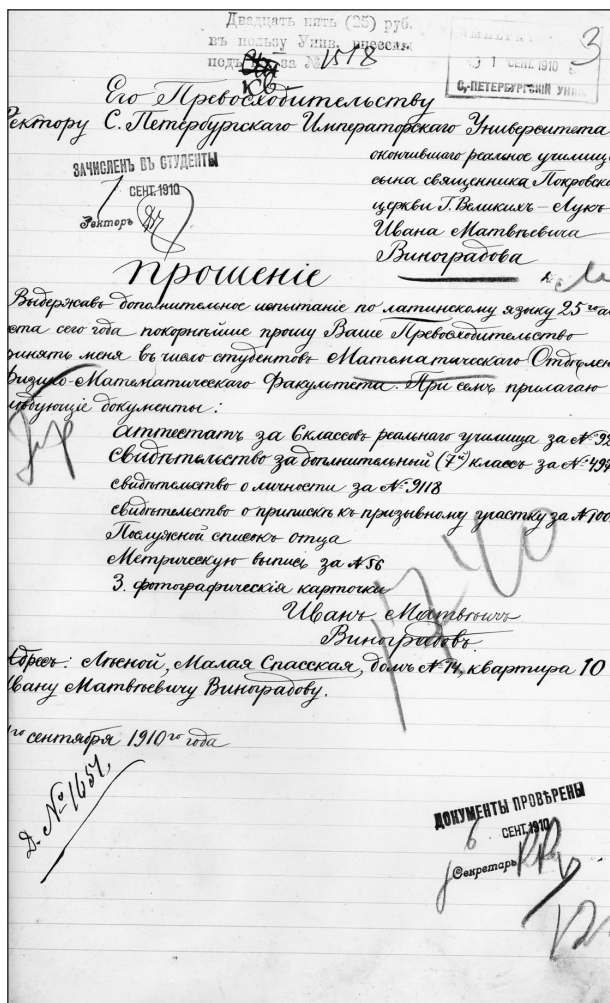 Двадцать пять (25) руб.
въ пользу Унив. внесены
подъ за № 1518
3
1 СЕНТ. 1910
С.-ПЕТЕРБУРГСКІЙ УНИВ
Его Превосходительству
Ректору С. Петербургскаго Императорскаго Университета
окончившаго реальное училище
сына священника Покровско
церкви Г. Великихъ-Лукъ
Ивана Матвѣевича
Виноградова
ЗАЧИСЛЕНЪ ВЪ СТУДЕНТЫ
СЕНТ. 1910
Ректоръ
прошеніе
Выдержавъ дополнительное испытаніе по латинскому языку 25го ав
ста сего года покорнѣйше прошу Ваше Превосходительство
ринять меня въ число студентовъ Математическаго Отдѣлен
Физико-Математическаго Факультета. При семъ прилагаю
ѣдующіе документы:
аттестатъ за 6 классовъ реальнаго училища за №
свидѣтельство за дополнительный (7й) классъ за № 497
свидѣтельство о личности за № 9118
свидѣтельство о припискѣ къ призывному участку за № 100
Послужной списокъ отца
Метрическую выпись за № 56
3. фотографическія карточки
Иванъ Матвѣевичъ
Виноградовъ.
1740
Адресъ: Лѣсной, Малая Спасская, домъ № 14, квартира 10
Ивану Матвѣевичу Виноградову.
1го сентября 1910го года
Д. № 1651,
ДОКУМЕНТЫ ПРОВѢРЕНЫ
6 СЕНТ. 1910
Секретарь